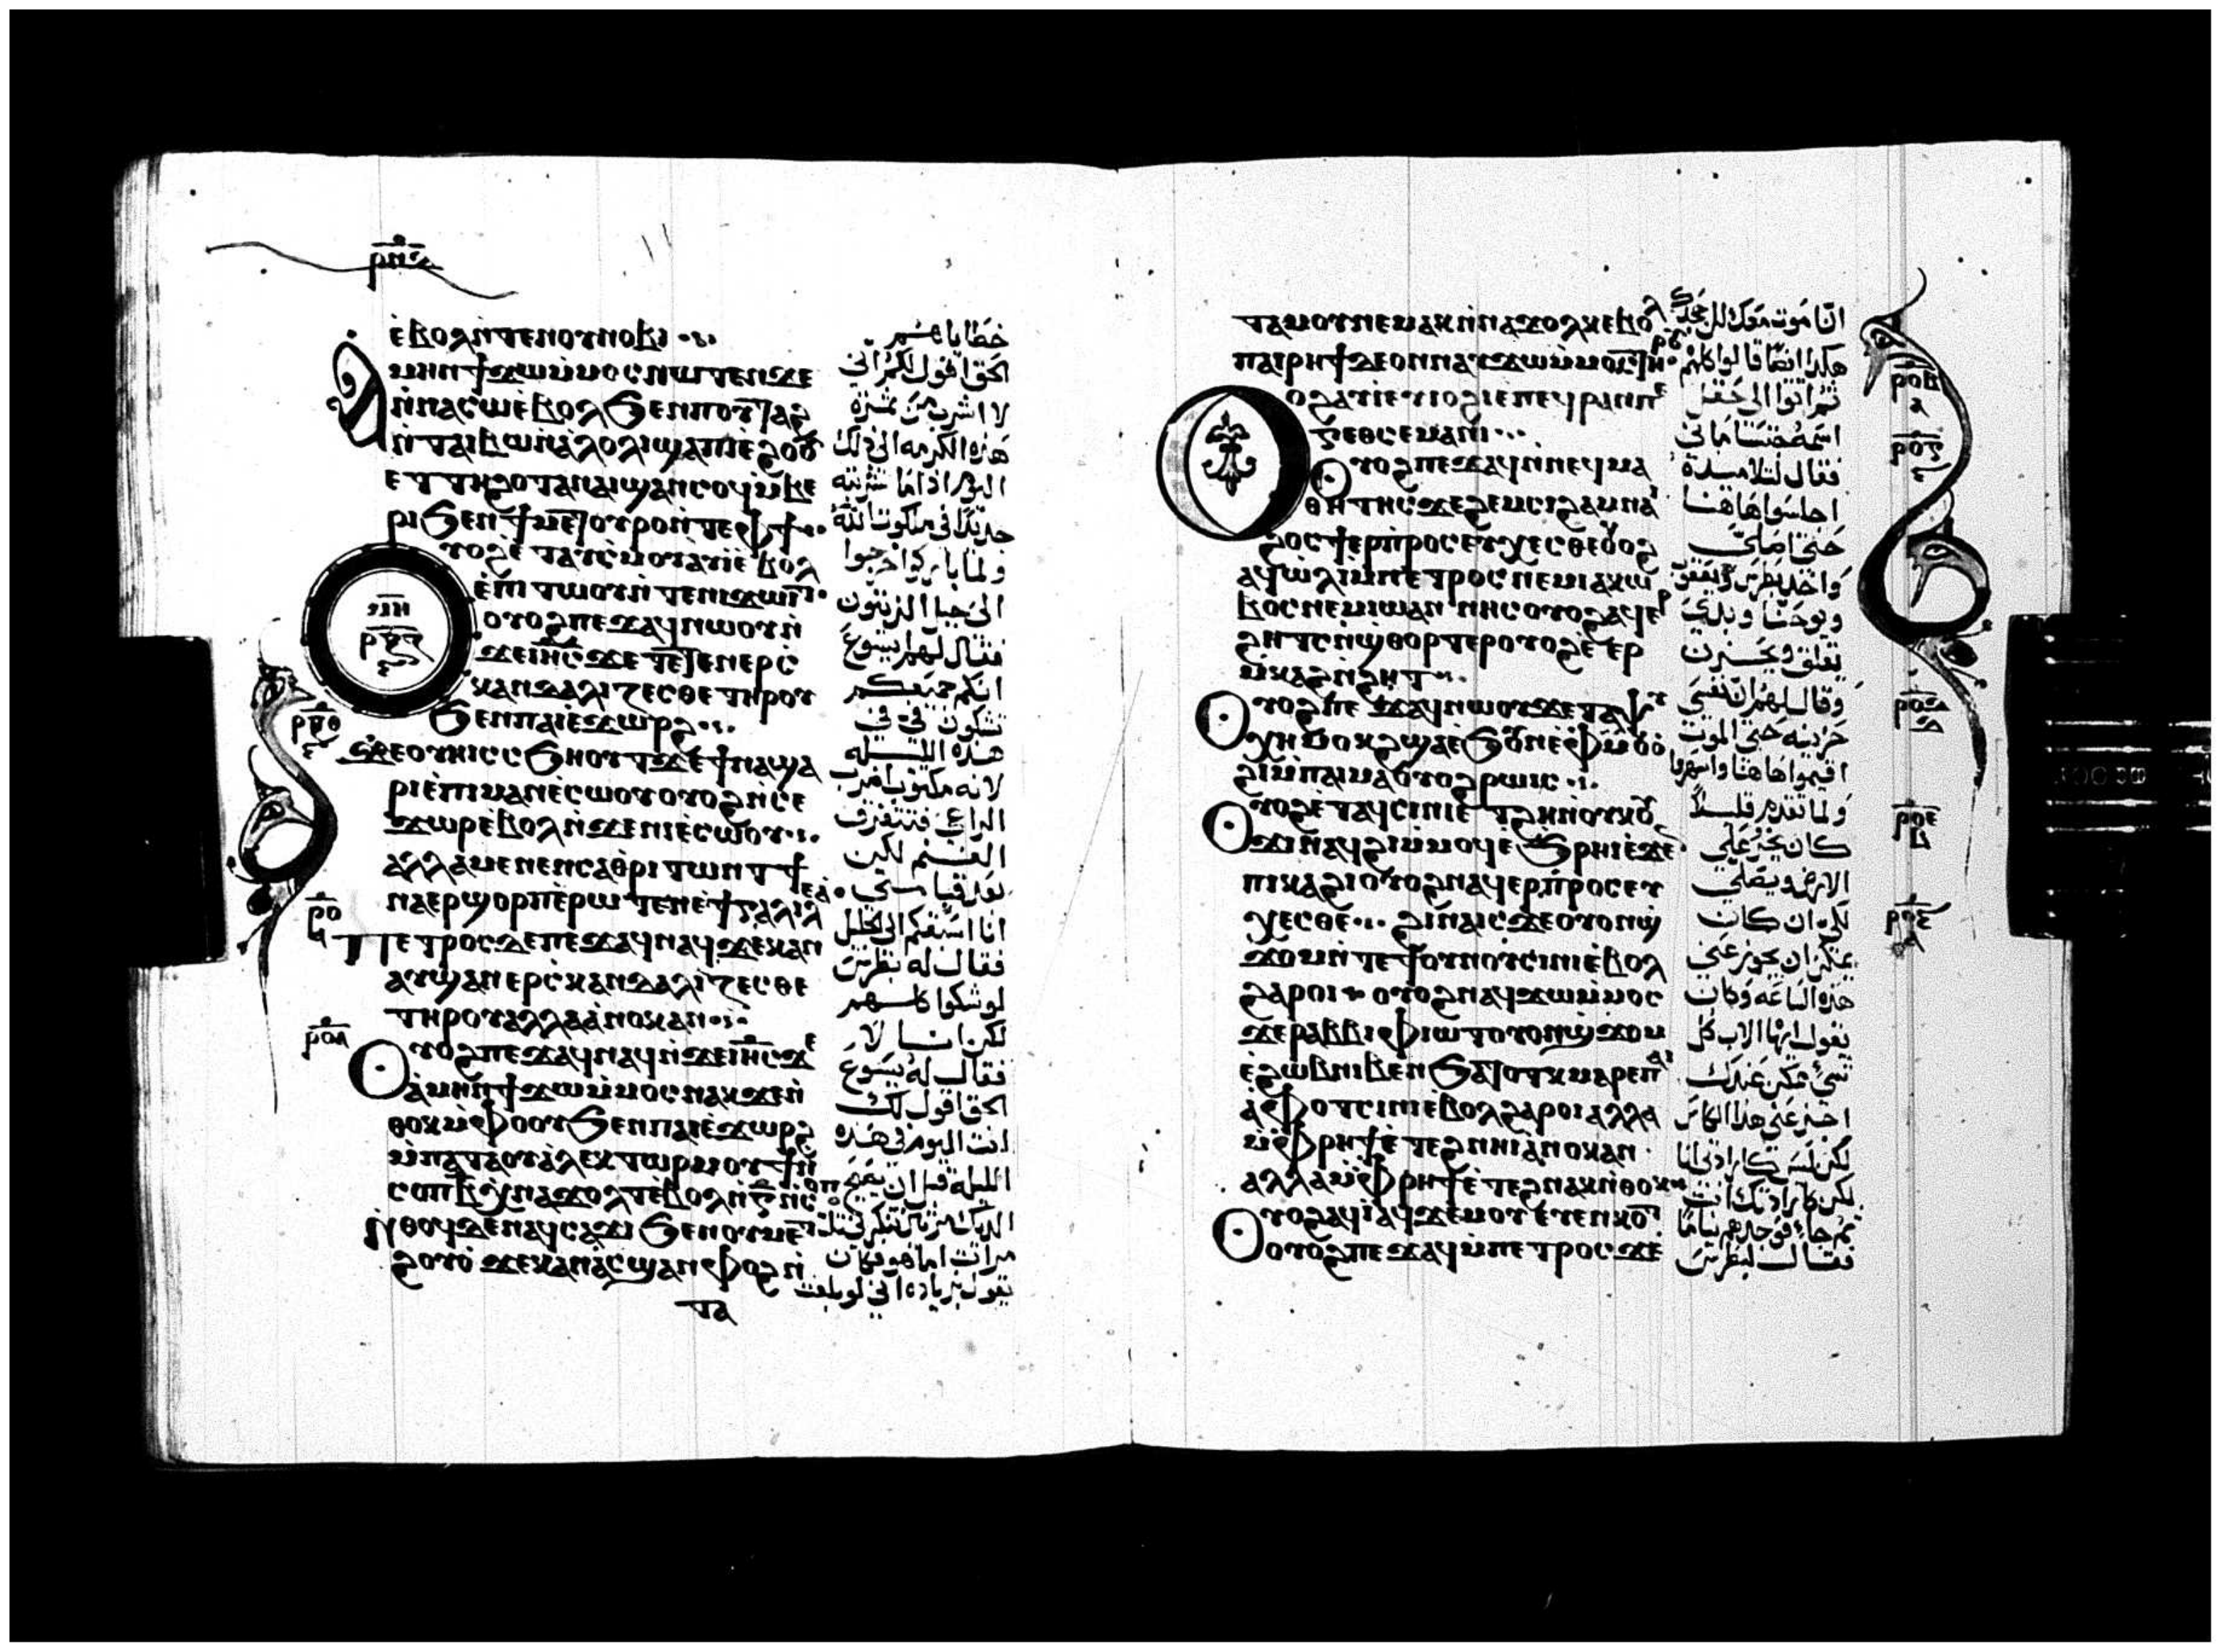 ⲣⲝⲏ
ⲉ̀ⲃⲟⲗⲛ̀ⲧⲉⲛⲟⲩⲛⲟⲃⲓ
ⲁⲙⲏⲛϯϫⲱⲙ̀ⲙⲟⲥⲛⲱⲧⲉⲛϫⲉ
ⲛ̀ⲛⲁⲥⲱⲉ̀ⲃⲟⲗϧⲉⲛⲡⲟⲩⲧⲁϩ
ⲛ̀ⲧⲁⲓⲃⲱⲛ̀ⲁ̀ⲗⲟⲗⲓϣⲁⲡⲓⲉ̀ϩⲟⲟⲩ
ⲉⲧⲧⲏϩⲟⲧⲁⲛⲁⲓϣⲁⲛⲥⲟϥⲙ̀ⲃⲉ
ⲣⲓϧⲉⲛϯⲙⲉⲧⲟⲩⲣⲟⲛ̀ⲧⲉⲫϯ
ⲟⲩⲟϩⲉ̀ⲧⲁⲩⲥ̀ⲙⲟⲩⲁⲩⲓⲉ̀ⲃⲟⲗ
ⲉ̀ⲡⲓⲧⲱⲟⲩⲛ̀ⲧⲉⲛⲓϫⲱⲓⲧ
ⲟⲩⲟϩⲡⲉϫⲁϥⲛⲱⲟⲩⲛ̀
ϫⲉⲓⲏ̅ⲥ̅ϫⲉⲧⲉⲧⲉⲛⲉⲣⲥ̀
ⲕⲁⲛⲇⲁⲗⲓⲍⲉⲥⲑⲉⲧⲏⲣⲟⲩ
ϧⲉⲛⲡⲁⲓⲉ̀ϫⲱⲣϩ
ϫⲉⲟⲩⲏⲓⲥⲥϧⲏⲟⲩⲧϫⲉϯⲛⲁϣⲁ
ⲣⲓⲉ̀ⲡⲓⲙⲁⲛⲉ̀ⲥⲱⲟⲩⲟⲩⲟϩⲛ̀ⲥⲉ
ϫⲱⲣⲉ̀ⲃⲟⲗⲛ̀ϫⲉⲛⲓⲉ̀ⲥⲱⲟⲩ
ⲁⲗⲗⲁⲙⲉⲛⲉⲛⲥⲁⲑⲣⲓⲧⲱⲛⲧϯ
ⲛⲁⲉⲣϣⲟⲣⲡⲉ̀ⲣⲱⲧⲉⲛⲉ̀ϯⲅⲁⲗⲓⲗⲉⲁ̀
ⲡⲉⲧⲣⲟⲥⲇⲉⲡⲉϫⲁϥⲛⲁϥϫⲉⲕⲁⲛ
ⲁⲩϣⲁⲛⲉⲣⲥ̀ⲕⲁⲛⲇⲁⲗⲓⲍⲉⲥⲑⲉ
ⲧⲏⲣⲟⲩⲁⲗⲗⲁⲁ̀ⲛⲟⲕⲁⲛ
ⲟⲩⲟϩⲡⲉϫⲁϥⲛⲁϥⲛ̀ϫⲉⲓⲏ̅ⲥ̅ϫⲉ
ⲁ̀ⲙⲏⲛϯϫⲱⲙ̀ⲙⲟⲥⲛⲁⲕϫⲉⲛ̀
ⲑⲟⲕⲙ̀ⲫⲟⲟⲩϧⲉⲛⲡⲁⲓⲉ̀ϫⲱⲣϩ
ⲙ̀ⲡⲁⲧⲁⲟⲩⲁ̀ⲗⲉⲕⲧⲱⲣⲙⲟⲩϯⲛ̀
ⲥⲟⲡⲃ̅ⲭ̀ⲛⲁϫⲟⲗⲧⲉ̀ⲃⲟⲗⲛ̀ⲅ̅ⲛ̀ⲥⲟⲡ
ⲛ̀ⲑⲟϥⲇⲉⲛⲁϥⲥⲁϫⲓϧⲉⲛⲟⲩⲙⲉⲧ
ϩⲟⲩⲟ̀ϫⲉⲕⲁⲛⲁⲥϣⲁⲛⲫⲟϩⲛ̀
ⲧⲁ
خطاياهم
الحق اقول لكم اني
لا اشرب من ثمرة
هذه الكرمه الى ذلك
اليوم اذا ما شربته
جديدًا في ملكوت الله
ولما باركوا خرجوا
الى جبل الزيتون
فقال لهم يسوع
انكم جميعكم
تشكون فيّ في
هذه الليله
لانه مكتوب اضرب
الراعي فتتفرق
الغنم لكن
بعد قيامتي
انا اسبقكم الى الجليل
فقال له بطرس
لو شكوا كلهم
لكن انا لا
فقال له يسوع
الحق اقول لك
انت اليوم في هذه
الليله قبل ان يصيح
الديك مرتان تنكرني ثلث
مرات اما هو فكان
يقول بزياده اني لو بلغت
ⲣⲝⲑ
ⲣⲟ
ⲣⲟⲁ
ⲧⲁⲙⲟⲩⲛⲉⲙⲁⲕⲛ̀ⲛⲁϫⲟⲗⲕⲉ̀ⲃⲟⲗ
ⲡⲁⲓⲣⲏϯⲇⲉⲟⲛⲛⲁⲩϫⲱⲙ̀ⲙⲟⲥⲧⲏⲣⲟⲩ
ⲟⲩⲟϩⲁⲩⲓⲉⲩⲓⲟϩⲓⲉⲡⲉϥⲣⲁⲛⲡⲉ
ⲅⲉⲑⲥⲉⲙⲁⲛⲓ
ⲟⲩⲟϩⲡⲉϫⲁϥⲛ̀ⲛⲉϥⲙⲁ
ⲑⲏⲧⲏⲥϫⲉϩⲉⲙⲥⲓϩⲁⲙⲛⲁⲓ
ϩⲟⲥϯⲉⲣⲡ̀ⲣⲟⲥⲉⲩⲭⲉⲥⲑⲉⲟⲩⲟϩ
ⲁϥⲱ̀ⲗⲓⲙ̀ⲡⲉⲧⲣⲟⲥⲛⲉⲙⲓⲁⲕⲱ
ⲃⲟⲥⲛⲉⲙⲓⲱⲁⲛⲛⲏⲥⲟⲩⲟϩⲁϥⲉⲣ
ϩⲏⲧⲥⲛ̀ϣ̀ⲑⲟⲣⲧⲉⲣⲟⲩⲟϩⲉ̀ⲉⲣ
ⲙ̀ⲕⲁϩⲛ̀ϩⲏⲧ
ⲟⲩⲟϩⲡⲉϫⲁϥⲛⲱⲟⲩϫⲉⲧⲁⲯⲩ
ⲭⲏⲙⲟⲕϩϣⲁⲉ̀ϧⲟⲩⲛⲉ̀ⲫⲙⲟⲩⲟ̀
ϩⲓⲙ̀ⲡⲁⲓⲙⲁⲟⲩⲟϩⲣⲱⲓⲥ
ⲟⲩⲟϩⲉ̀ⲧⲁϥⲥⲓⲛⲓⲉ̀ⲧϩⲏⲛ̀ⲟⲩⲕⲟⲩ
ϫⲓⲛⲁϥϩⲓⲙ̀ⲙⲟϥⲉ̀ϧ̀ⲣⲏⲓⲉ̀ϫⲉ
ⲡⲓⲕⲁϩⲓⲟⲩⲟϩⲛⲁϥⲉⲣⲡ̀ⲣⲟⲥⲉⲩ
ⲭⲉⲥⲑⲉ ϩⲓⲛⲁⲓⲥϫⲉⲟⲩⲟⲛϣ̀
ϫⲟⲙⲛ̀ⲧⲉϯⲟⲩⲛⲟⲩⲥⲓⲛⲓⲉ̀ⲃⲟⲗ
ϩⲁⲣⲟⲓ ⲟⲩⲟϩⲛⲁϥϫⲱⲙ̀ⲙⲟⲥ
ϫⲉⲣⲁⲃⲃⲓⲫⲓⲱⲧⲟⲩⲟⲛϣ̀ϫⲟⲙ
ⲉ̀ϩⲱⲃⲛⲓⲃⲉⲛϧⲁⲧⲟⲧⲕⲙⲁⲣⲉⲡⲁⲓ
ⲁ̀ⲫⲟⲧⲥⲓⲛⲓⲉ̀ⲃⲟⲗϩⲁⲣⲟⲓⲁⲗⲗⲁ
ⲙ̀ⲫⲣⲏϯⲉ̀ⲧⲉϩⲛⲏⲓⲁ̀ⲛⲟⲕⲁⲛ
ⲁⲗⲗⲁⲙ̀ⲫⲣⲏϯⲉ̀ⲧⲉϩⲛⲁⲕⲛ̀ⲑⲟⲕ
ⲟⲩⲟϩⲁϥⲓ̀ⲁϥϫⲉⲙⲟⲩⲉⲩⲉⲛⲕⲟⲧ
ⲟⲩⲟϩⲡⲉϫⲁϥⲙ̀ⲡⲉⲧⲣⲟⲥϫⲉ
انا موت معك لن اجحدك
هكذا ايضًا قالوا كلهم
ثم اتوا الى حقل
اسمه جتسامانى
فقال لتلاميذه
اجلسوا هاهنا
حتى اصلي
واخذ بطرس ويعقوب
ويوحنا وبدي
يقلق ويحزن
وقال لهم ان نفسي
حزينه حتى الموت
اقيموا هاهنا واسهروا
ولما تقدم قليلًا
كان يخر على
الارض ويصلي
لكي ان كان
يمكن ان يجوز عني
هذه الساعه وكان
يقول ايها الاب كل
شيء ممكن عندك
اجز عني هذا الكاس
لكن ليس كارادتي انا
لكن كارادتك انت
ثم جاء فوجدهم نيامًا
فقال لبطرس
ⲣⲟⲃ
ⲣⲟⲅ
ⲣⲟⲇ
ⲣⲟⲉ
ⲣⲟⲋ